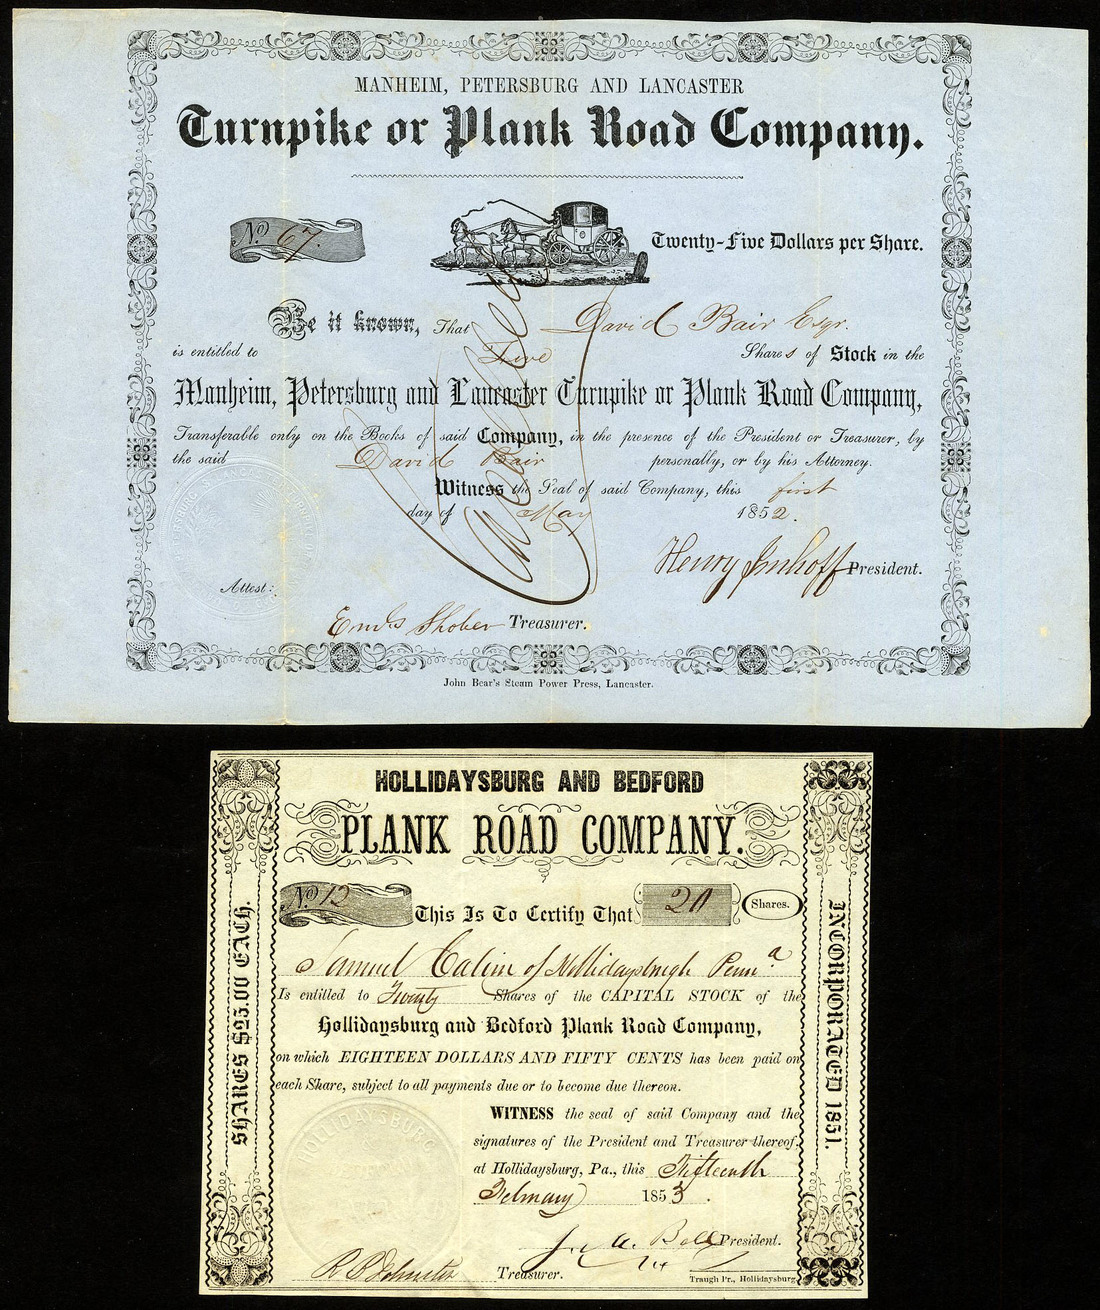 MANHEIM, PETERSBURG AND LANCASTER
Turnpike or Plank Road Company.
No. 67.
Twenty-Five Dollars per Share.
Be it known, That David Bair Esqr.
is entitled to Five Shares of Stock in the
Manheim, Petersburg and Lancaster Turnpike or Plank Road Company,
Transferable only on the Books of said Company, in the presence of the President or Treasurer, by
the said David Bair personally, or by his Attorney.
Witness the Seal of said Company, this first
day of May 1852.
Cancelled
Henry Imhoff President.
Attest:
Shober Treasurer.
John Bear's Steam Power Press, Lancaster.
HOLLIDAYSBURG AND BEDFORD
PLANK ROAD COMPANY.
No 12
This Is To Certify That 20 Shares.
Samuel Calvin of Hollidaysburgh Penna.
Is entitled to Twenty Shares of the CAPITAL STOCK of the
Hollidaysburg and Bedford Plank Road Company,
on which EIGHTEEN DOLLARS AND FIFTY CENTS has been paid on
each Share, subject to all payments due or to become due thereon.
WITNESS the seal of said Company and the
signatures of the President and Treasurer thereof,
at Hollidaysburg, Pa., this Fifteenth
February 1853.
HOLLIDAYSBURG
President.
R B Johnston Treasurer.
Traugh Pr., Hollidaysburg.
SHARES $25.00 EACH.
INCORPORATED 1851.